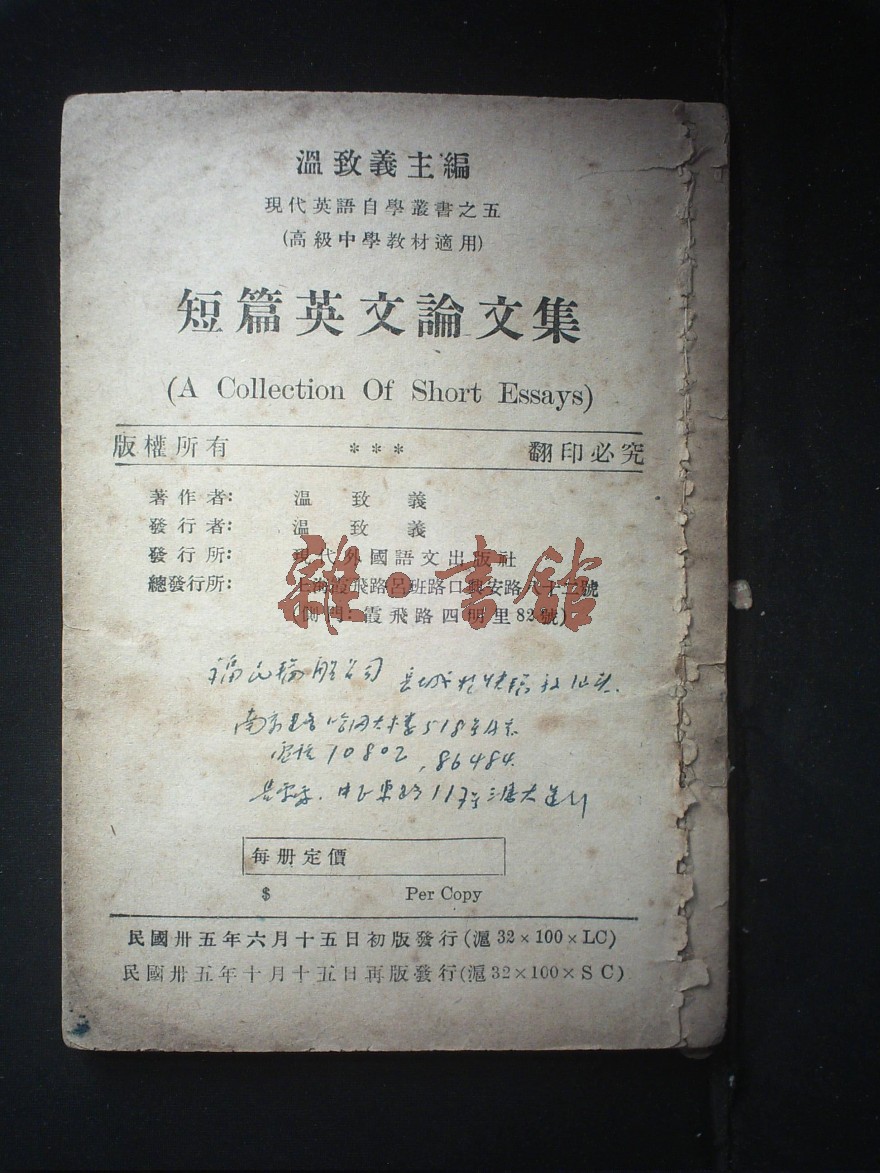 溫致義主編
現代英語自學叢書之五
(高級中學教材適用)
短篇英文論文集
(A Collection Of Short Essays)
版權所有 *** 翻印必究
著作者: 溫致義
發行者: 溫致義
發行所: 現代外國語文出版社
總發行所: 上海霞飛路呂班路口興安路八十二號
(側門: 霞飛路四明里82號)
雜·書館
公司
南京路 大樓518
10802, 86484
117
每册定價
$ Per Copy
民國卅五年六月十五日初版發行(滬32×100×LC)
民國卅五年十月十五日再版發行(滬32×100×SC)